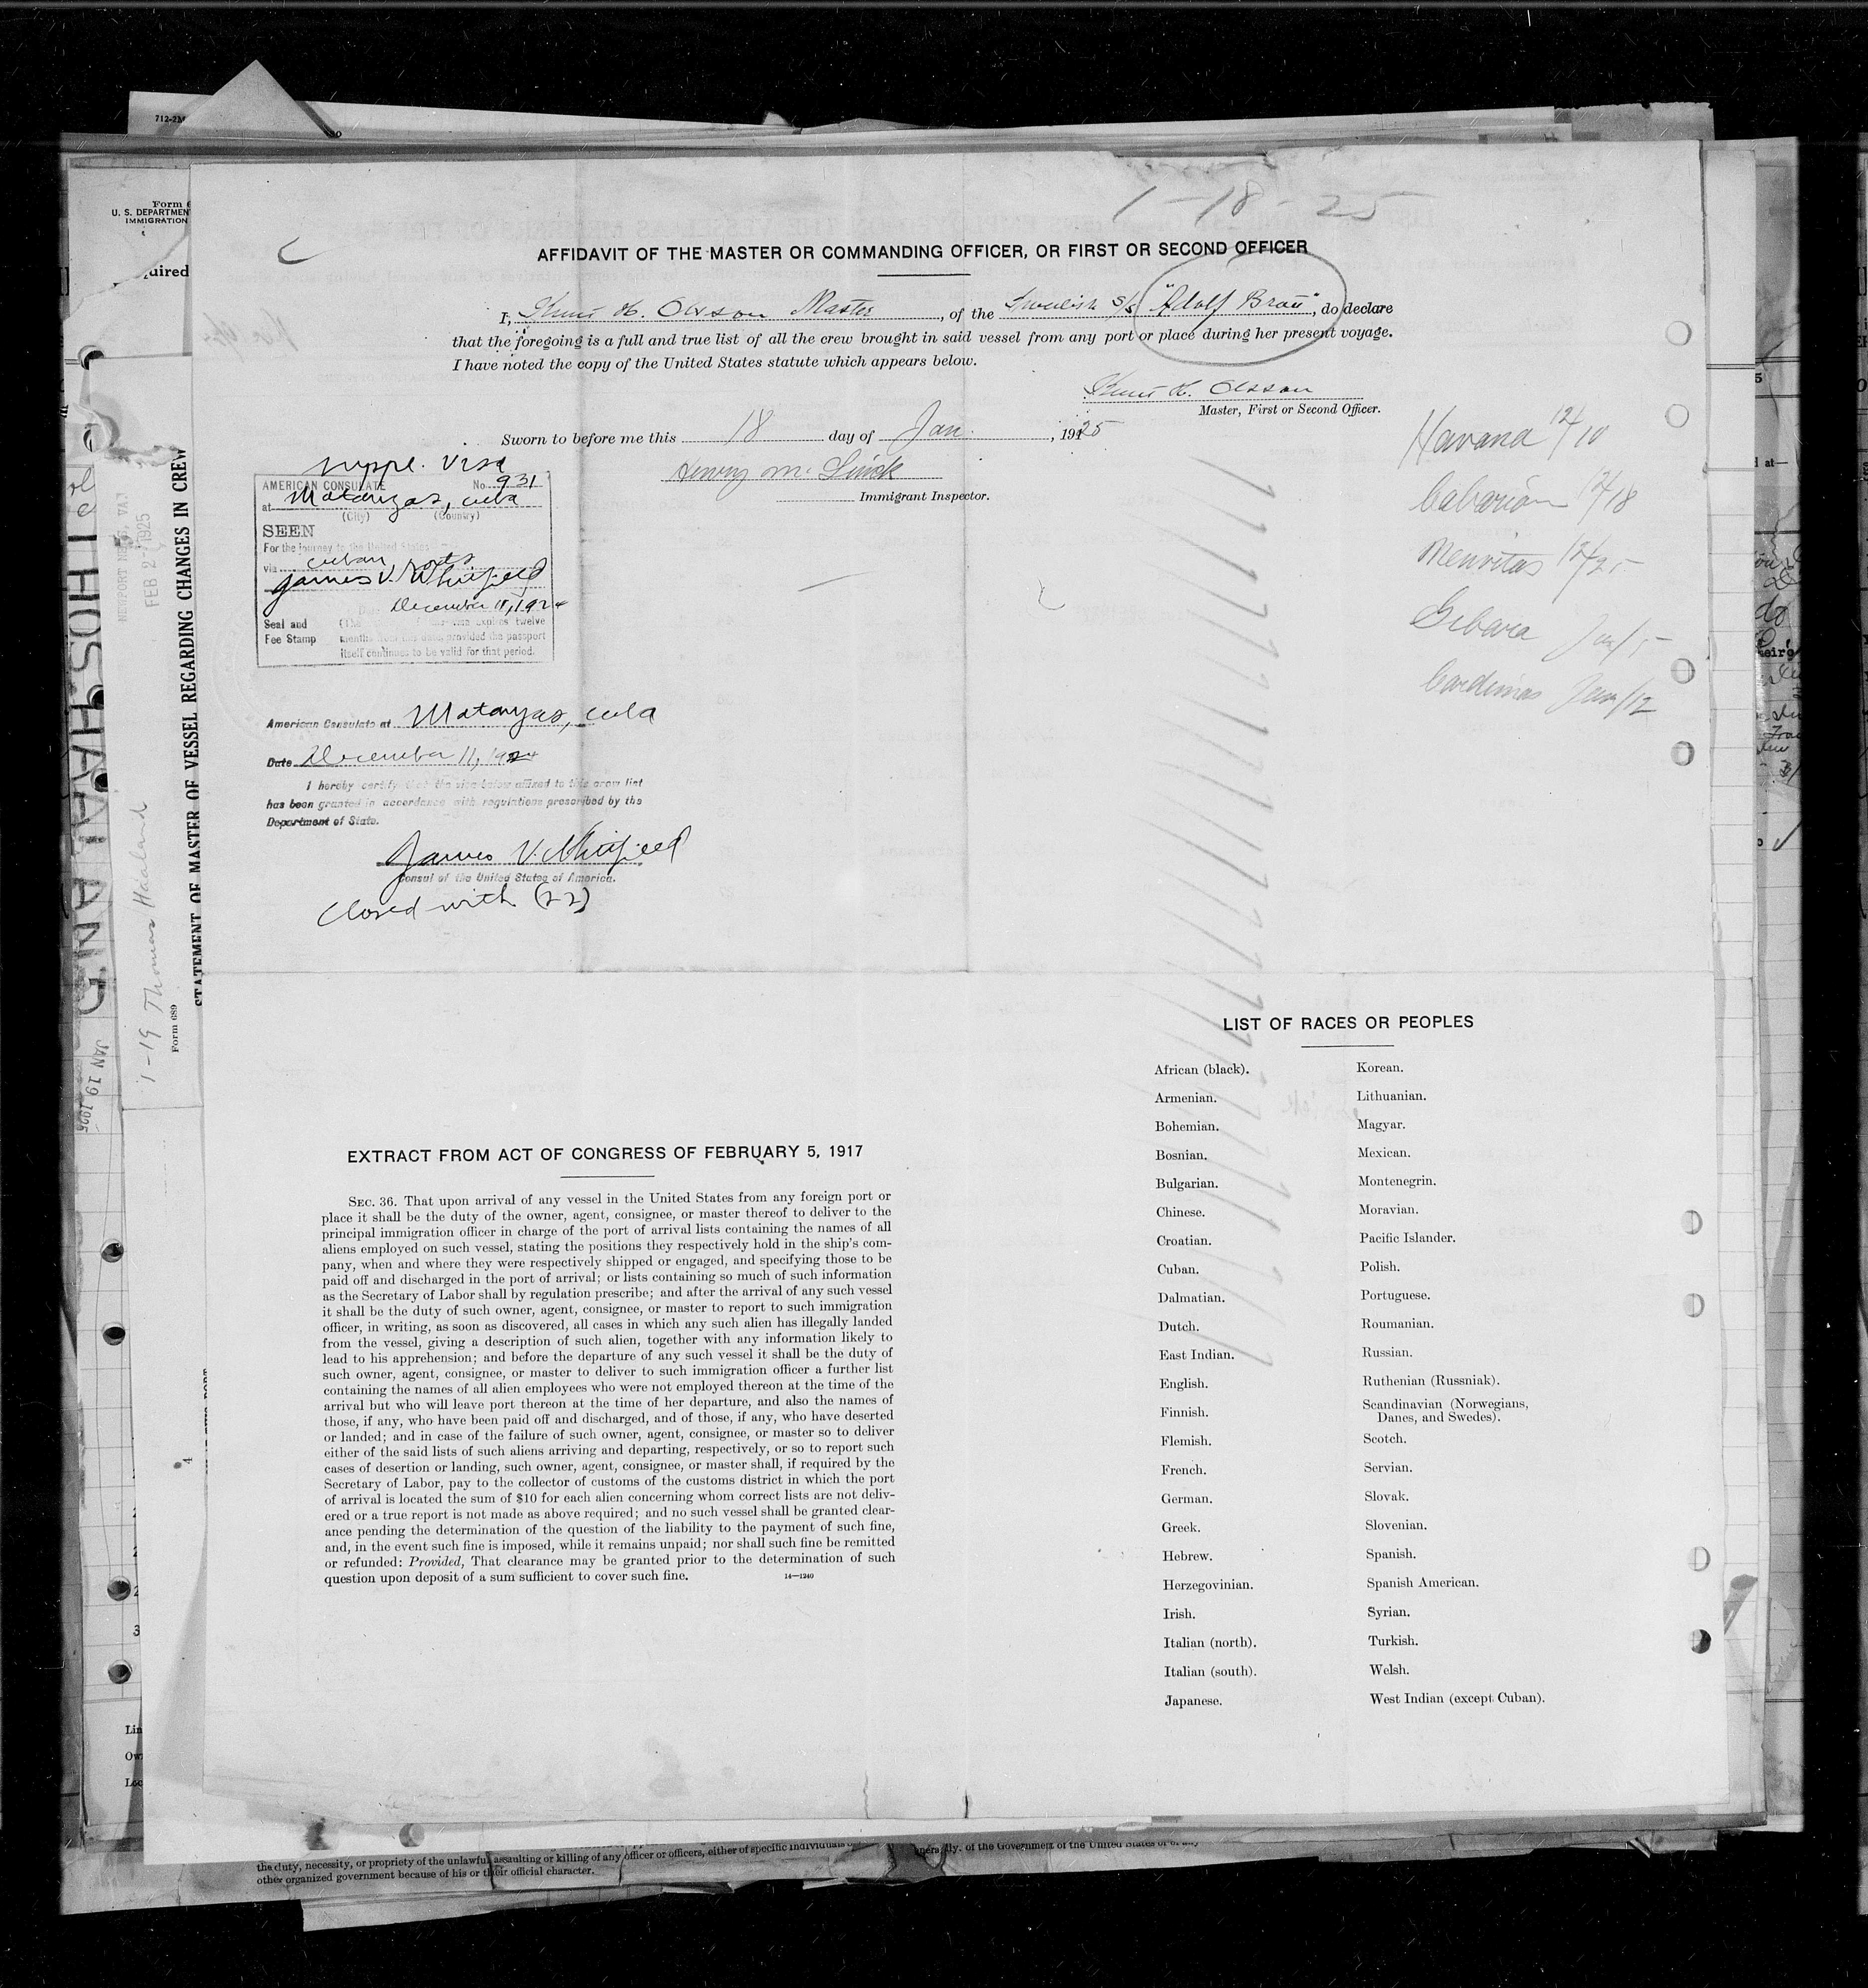 712-2
Form 6
U. S. DEPARTMEN
IMMIGRATION
uired
1-18-25
AFFIDAVIT OF THE MASTER OR COMMANDING OFFICER, OR FIRST OR SECOND OFFICER
I, Knut H. Olsson Master, of the Swedish S/S "Adolf Bratt", do declare
that the foregoing is a full and true list of all the crew brought in said vessel from any port or place during her present voyage.
I have noted the copy of the United States statute which appears below.
Knut H. Olsson
Master, First or Second Officer.
Sworn to before me this 18 day of Jan., 1925
Henry M.
Immigrant Inspector.
Havana 12/10
Caibarien 12/18
12/25
Gibara Jan/5
Cardenas Jan/12
Suppl. Visa
AMERICAN CONSULATE No. 931
at Matanzas, Cuba
(City) (Country)
SEEN
For the journey to the United States
via Cuban ports
James V. Whitfield
December 11, 1924
Seal and
Fee Stamp
expires twelve
months from this date provided the passport
itself continues to be valid for that period.
American Consulate at Matanzas, Cuba
Date December 11, 1924
I hereby certify that the visa below affixed to this crew list
has been granted in accordance with regulations prescribed by the
Department of State.
James V. Whitfield
Consul of the United States of America.
Closed with (22)
THOS. HAALAND
JAN 19 1925
NEWPORT NEWS, VA.
FEB 2 1925
1-19 Thomas Haaland
Form 689
STATEMENT OF MASTER OF VESSEL REGARDING CHANGES IN CREW
EXTRACT FROM ACT OF CONGRESS OF FEBRUARY 5, 1917
SEC. 36. That upon arrival of any vessel in the United States from any foreign port or
place it shall be the duty of the owner, agent, consignee, or master thereof to deliver to the
principal immigration officer in charge of the port of arrival lists containing the names of all
aliens employed on such vessel, stating the positions they respectively hold in the ship's com-
pany, when and where they were respectively shipped or engaged, and specifying those to be
paid off and discharged in the port of arrival; or lists containing so much of such information
as the Secretary of Labor shall by regulation prescribe; and after the arrival of any such vessel
it shall be the duty of such owner, agent, consignee, or master to report to such immigration
officer, in writing, as soon as discovered, all cases in which any such alien has illegally landed
from the vessel, giving a description of such alien, together with any information likely to
lead to his apprehension; and before the departure of any such vessel it shall be the duty of
such owner, agent, consignee, or master to deliver to such immigration officer a further list
containing the names of all alien employees who were not employed thereon at the time of the
arrival but who will leave port thereon at the time of her departure, and also the names of
those, if any, who have been paid off and discharged, and of those, if any, who have deserted
or landed; and in case of the failure of such owner, agent, consignee, or master so to deliver
either of the said lists of such aliens arriving and departing, respectively, or so to report such
cases of desertion or landing, such owner, agent, consignee, or master shall, if required by the
Secretary of Labor, pay to the collector of customs of the customs district in which the port
of arrival is located the sum of $10 for each alien concerning whom correct lists are not deliv-
ered or a true report is not made as above required; and no such vessel shall be granted clear-
ance pending the determination of the question of the liability to the payment of such fine,
and, in the event such fine is imposed, while it remains unpaid; nor shall such fine be remitted
or refunded: Provided, That clearance may be granted prior to the determination of such
question upon deposit of a sum sufficient to cover such fine. 14—1240
LIST OF RACES OR PEOPLES
African (black).
Armenian.
Bohemian.
Bosnian.
Bulgarian.
Chinese.
Croatian.
Cuban.
Dalmatian.
Dutch.
East Indian.
English.
Finnish.
Flemish.
French.
German.
Greek.
Hebrew.
Herzegovinian.
Irish.
Italian (north).
Italian (south).
Japanese.
Korean.
Lithuanian.
Magyar.
Mexican.
Montenegrin.
Moravian.
Pacific Islander.
Polish.
Portuguese.
Roumanian.
Russian.
Ruthenian (Russniak).
Scandinavian (Norwegians,
Danes, and Swedes).
Scotch.
Servian.
Slovak.
Slovenian.
Spanish.
Spanish American.
Syrian.
Turkish.
Welsh.
West Indian (except Cuban).
Lin
Ow
Loc
the duty, necessity, or propriety of the unlawful assaulting or killing of any officer or officers, either of specific individuals
of the Government of the United States or of any
other organized government because of his or their official character.